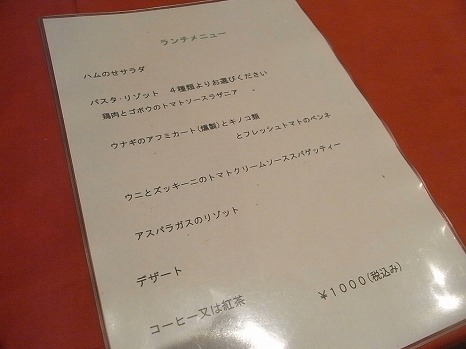 ランチメニュー
ハムのせサラダ
パスタ・リゾット　４種類よりお選びください
鶏肉とゴボウのトマトソースラザニア
ウナギのアフミカート(燻製)とキノコ類
とフレッシュトマトのペンネ
ウニとズッキーニのトマトクリームソーススパゲッティー
アスパラガスのリゾット
デザート
コーヒー又は紅茶
￥１０００(税込み)